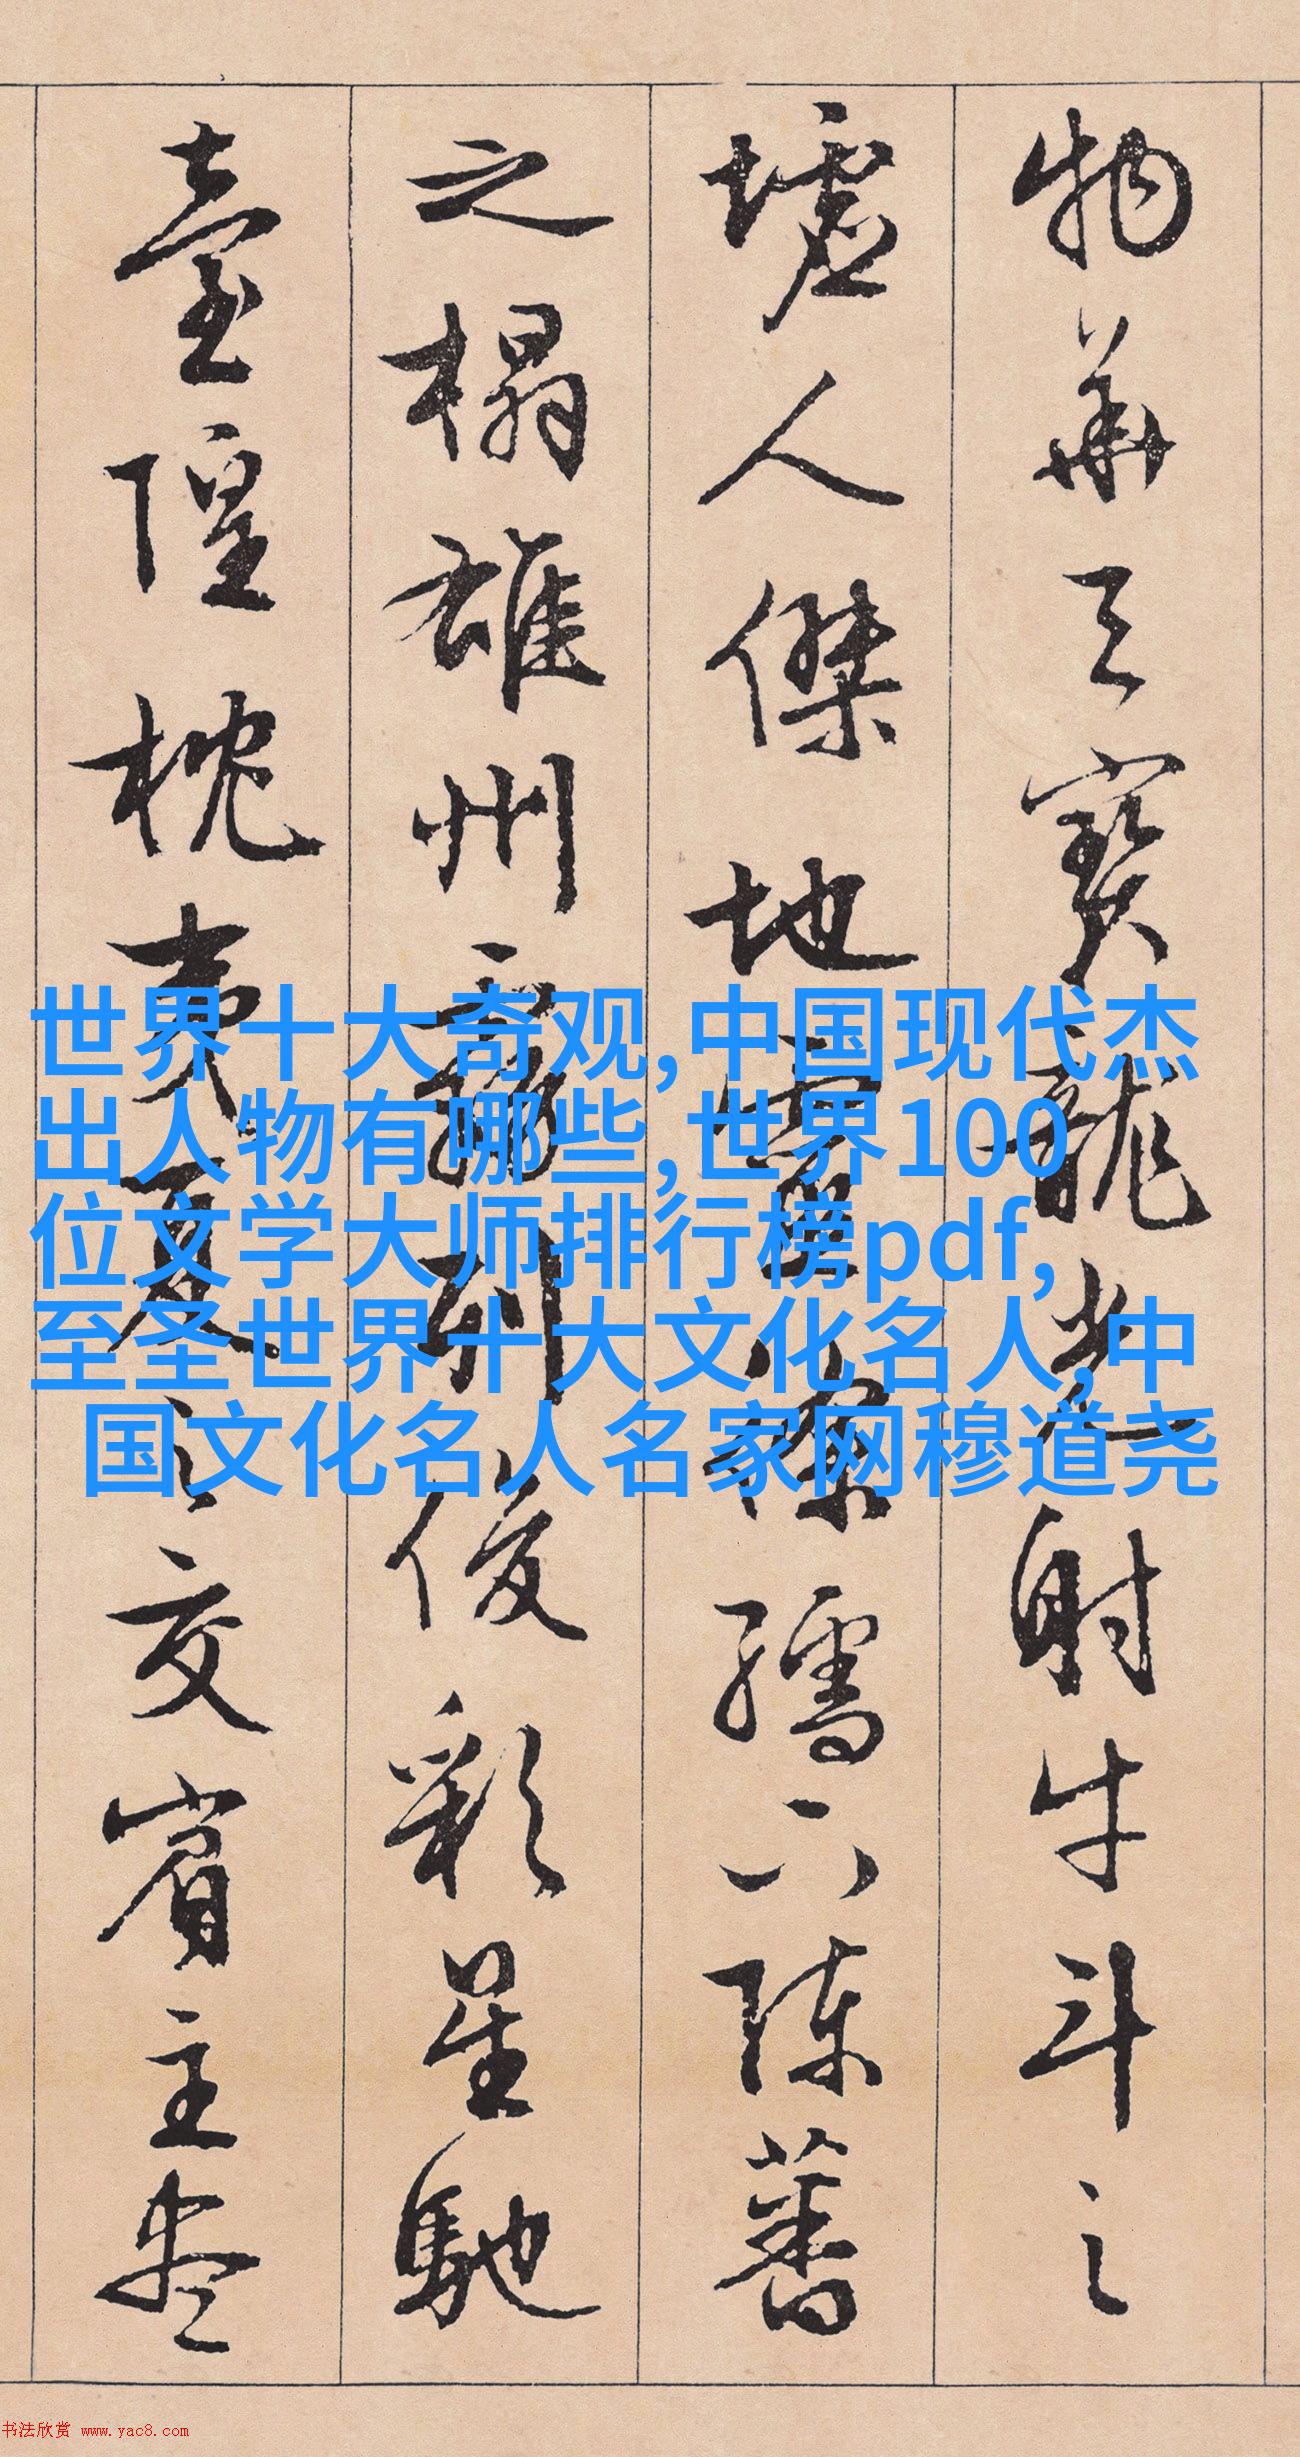 物華天寶龍光射牛斗之
墟人傑地靈徐孺下陳蕃
之榻雄州霧列俊彩星馳
臺隍枕夷夏之交賓主盡
世界十大奇观,中国现代杰
出人物有哪些,世界100
位文学大师排行榜pdf,
至圣世界十大文化名人,中
国文化名人名家网穆道尧
书法欣赏 www.yac8.com